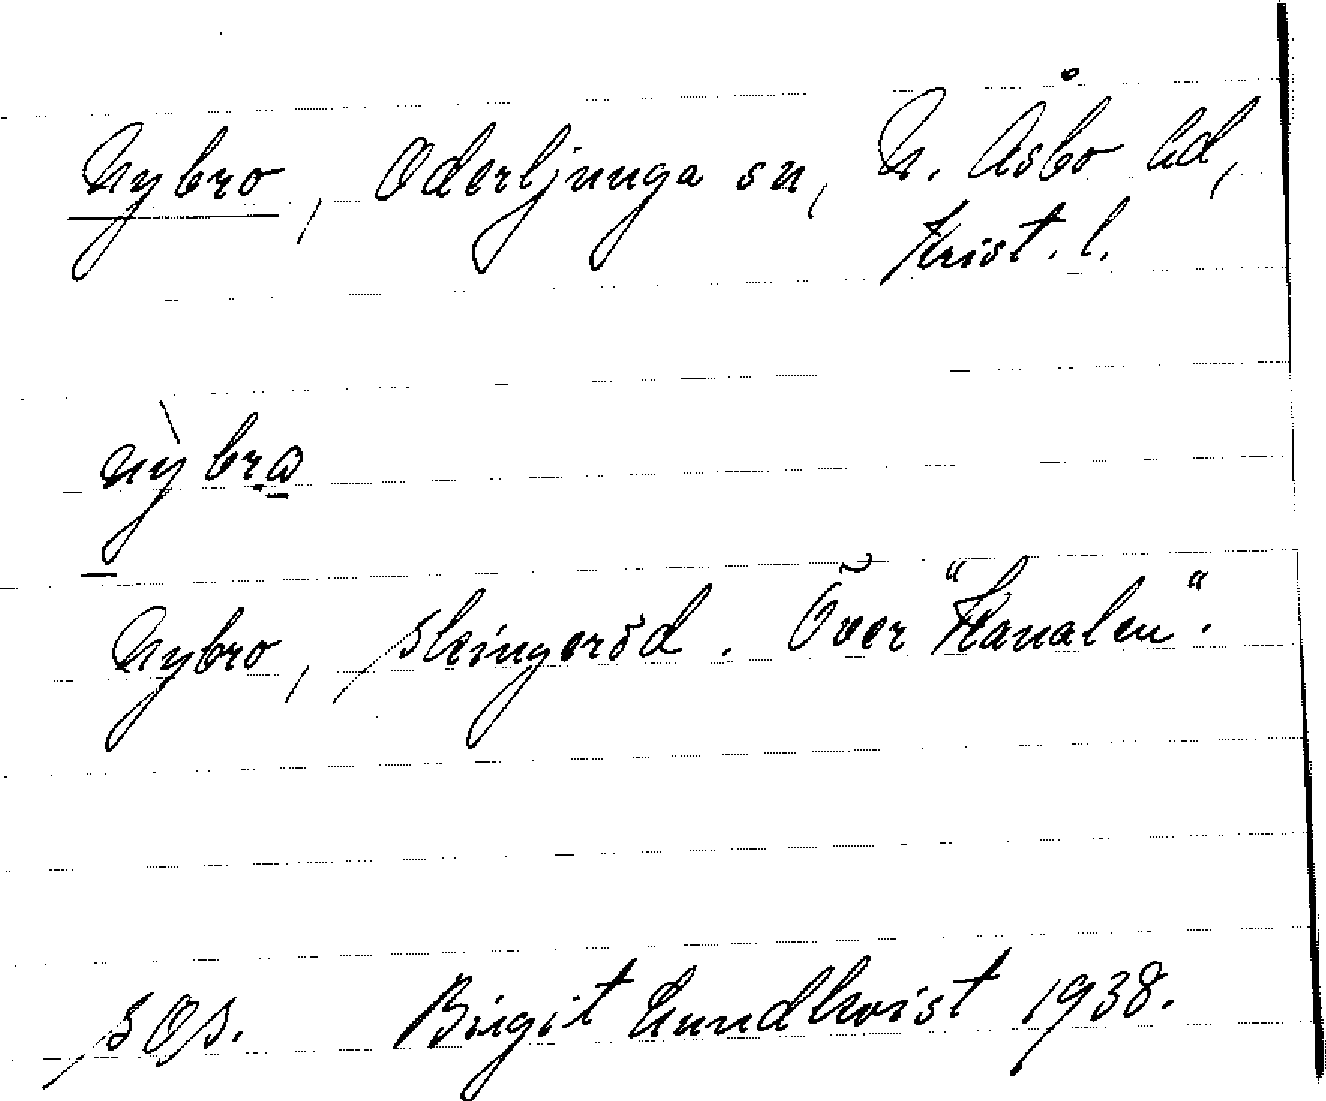 Nybro, Oderljunga sn, N. Åsbo hd,
Krist. l.
nỳbrɷ
Nybro, Skingeröd. Över "Kanalen".
SOS. Birgit Lundkvist 1938.